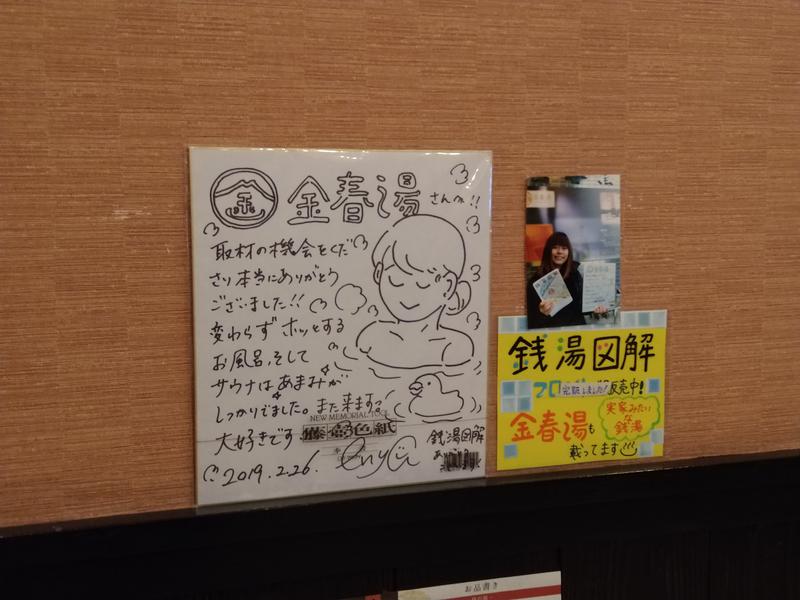 金
金春湯
さんへ!!
取材の機会をくだ
さり本当にありがとう
ございました!!
変わらずホッとする
お風呂、そして
サウナはあまみが
しっかりでました。また来ますっ
NEW MEMORIAL TOOL
大好きです
色紙
銭湯図解
2019.2.26.
銭湯図解
完売しました!
販売中!
金春湯も
実家みたい
な
銭湯
載ってます
お品書き